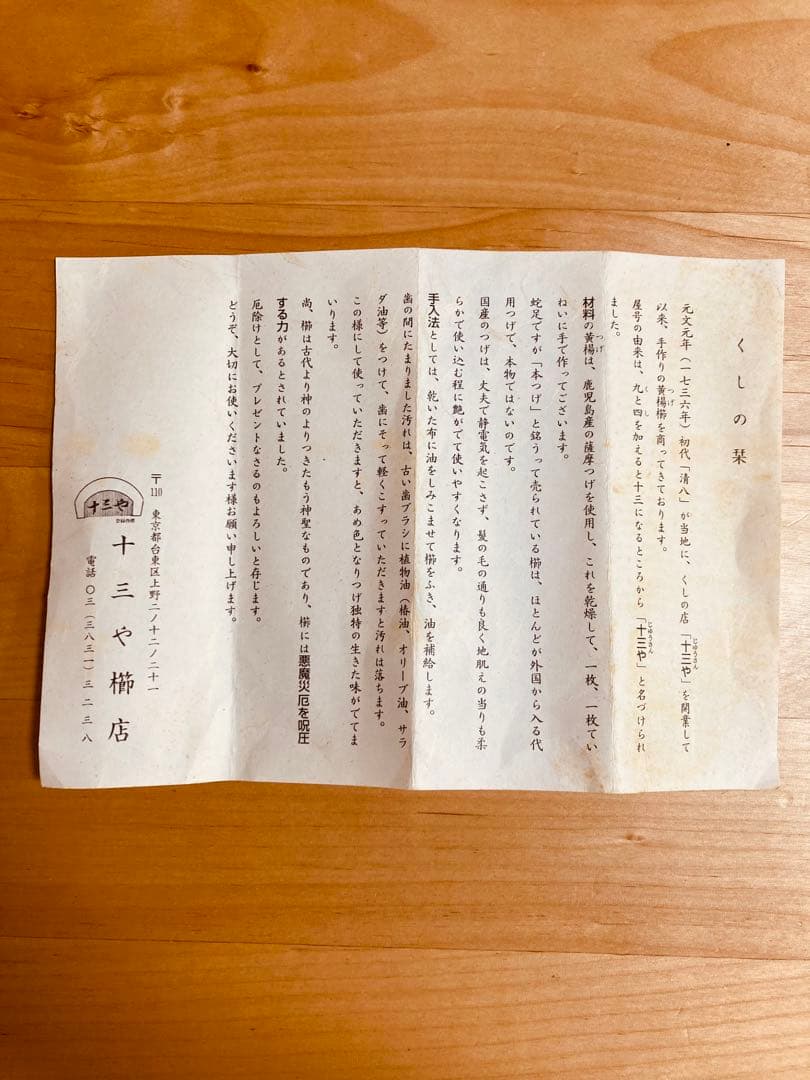 くしの栞
元文元年(一七三六年)初代「清八」が当地に、くしの店「十三や」を開業して
以来、手作りの黄楊櫛を商ってきております。
屋号の由来は、九と四を加えると十三になるところから「十三や」と名づけられ
ました。
材料の黄楊は、鹿児島産の薩摩つげを使用し、これを乾燥して、一枚、一枚てい
ねいに手で作ってございます。
蛇足ですが「本つげ」と銘うって売られている櫛は、ほとんどが外国から入る代
用つげで、本物ではないのです。
国産のつげは、丈夫で静電気を起こさず、髪の毛の通りも良く地肌えの当りも柔
らかで使い込む程に艶がでて使いやすくなります。
手入法としては、乾いた布に油をしみこませて櫛をふき、油を補給します。
歯の間にたまりました汚れは、古い歯ブラシに植物油(椿油、オリーブ油、サラ
ダ油等)をつけて、歯にそって軽くこすっていただきますと汚れは落ちます。
この様にして使っていただきますと、あめ色となりつげ独特の生きた味がでてま
いります。
尚、櫛は古代より神のよりつきたもう神聖なものであり、櫛には悪魔災厄を呪圧
する力があるとされていました。
厄除けとして、プレゼントなさるのもよろしいと存じます。
どうぞ、大切にお使いくださいます様お願い申し上げます。
〒110 東京都台東区上野二ノ十二ノ二十一
十三や
登録商標
十三や櫛店
電話〇三(三八三一)三二三八